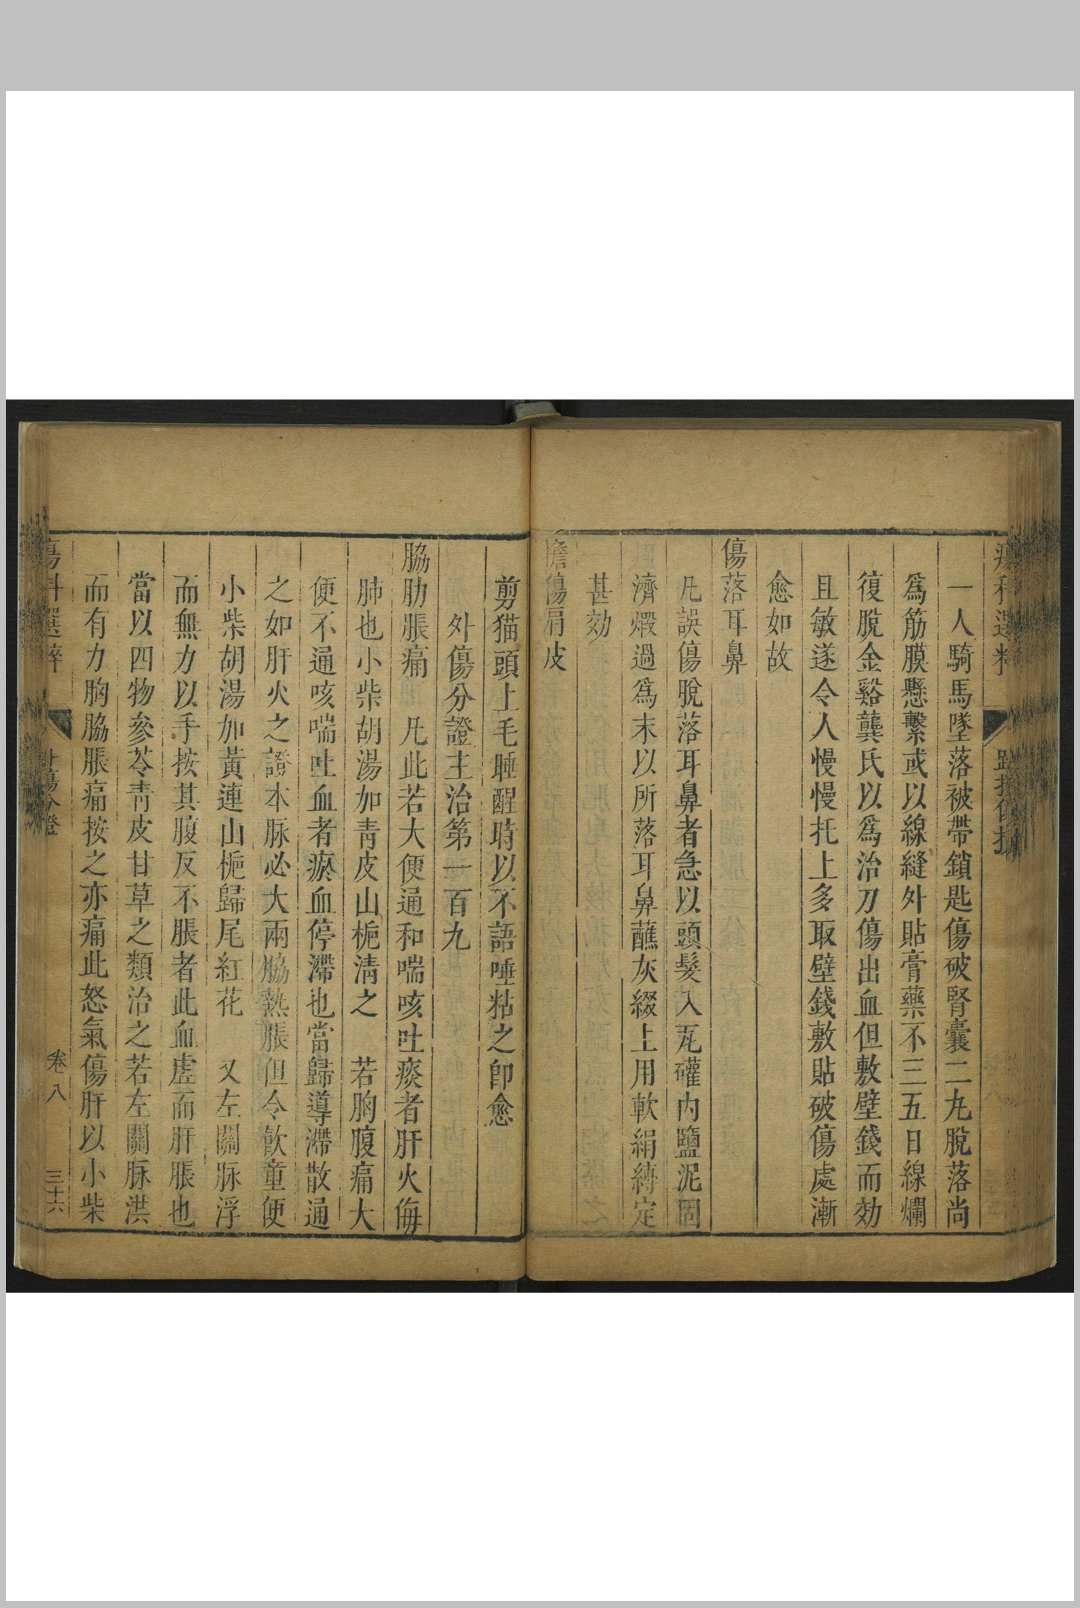 瘍科選粹
跌撲傷損
一人騎馬墜落被帶鎖匙傷破腎囊二丸脫落尚
爲筋膜懸繫或以線縫外貼膏藥不三五日線爛
復脫金谿龔氏以爲治刀傷出血但敷壁錢而効
且敏遂令人慢慢托上多取壁錢敷貼破傷處漸
愈如故
傷落耳鼻
凡誤傷脫落耳鼻者急以頭髮入瓦礶內鹽泥固
濟煅過爲末以所落耳鼻蘸灰綴上用軟絹縳定
甚効
擔傷肩皮
剪猫頭上毛睡醒時以不語唾粘之卽愈
外傷分證主治第一百九
脇肋脹痛 凡此若大便通和喘咳吐痰者肝火侮
肺也小柴胡湯加靑皮山梔淸之 若胸腹痛大
便不通咳喘吐血者瘀血停滯也當歸導滯散通
之如肝火之證本脉必大兩脇熱脹但令飮童便
小柴胡湯加黃連山梔歸尾紅花 又左關脉浮
而無力以手按其腹反不脹者此血虛而肝脹也
當以四物參苓靑皮甘草之類治之若左關脉洪
而有力胸脇脹痛按之亦痛此怒氣傷肝以小柴
瘍科選粹
外傷分證
卷八
三十六